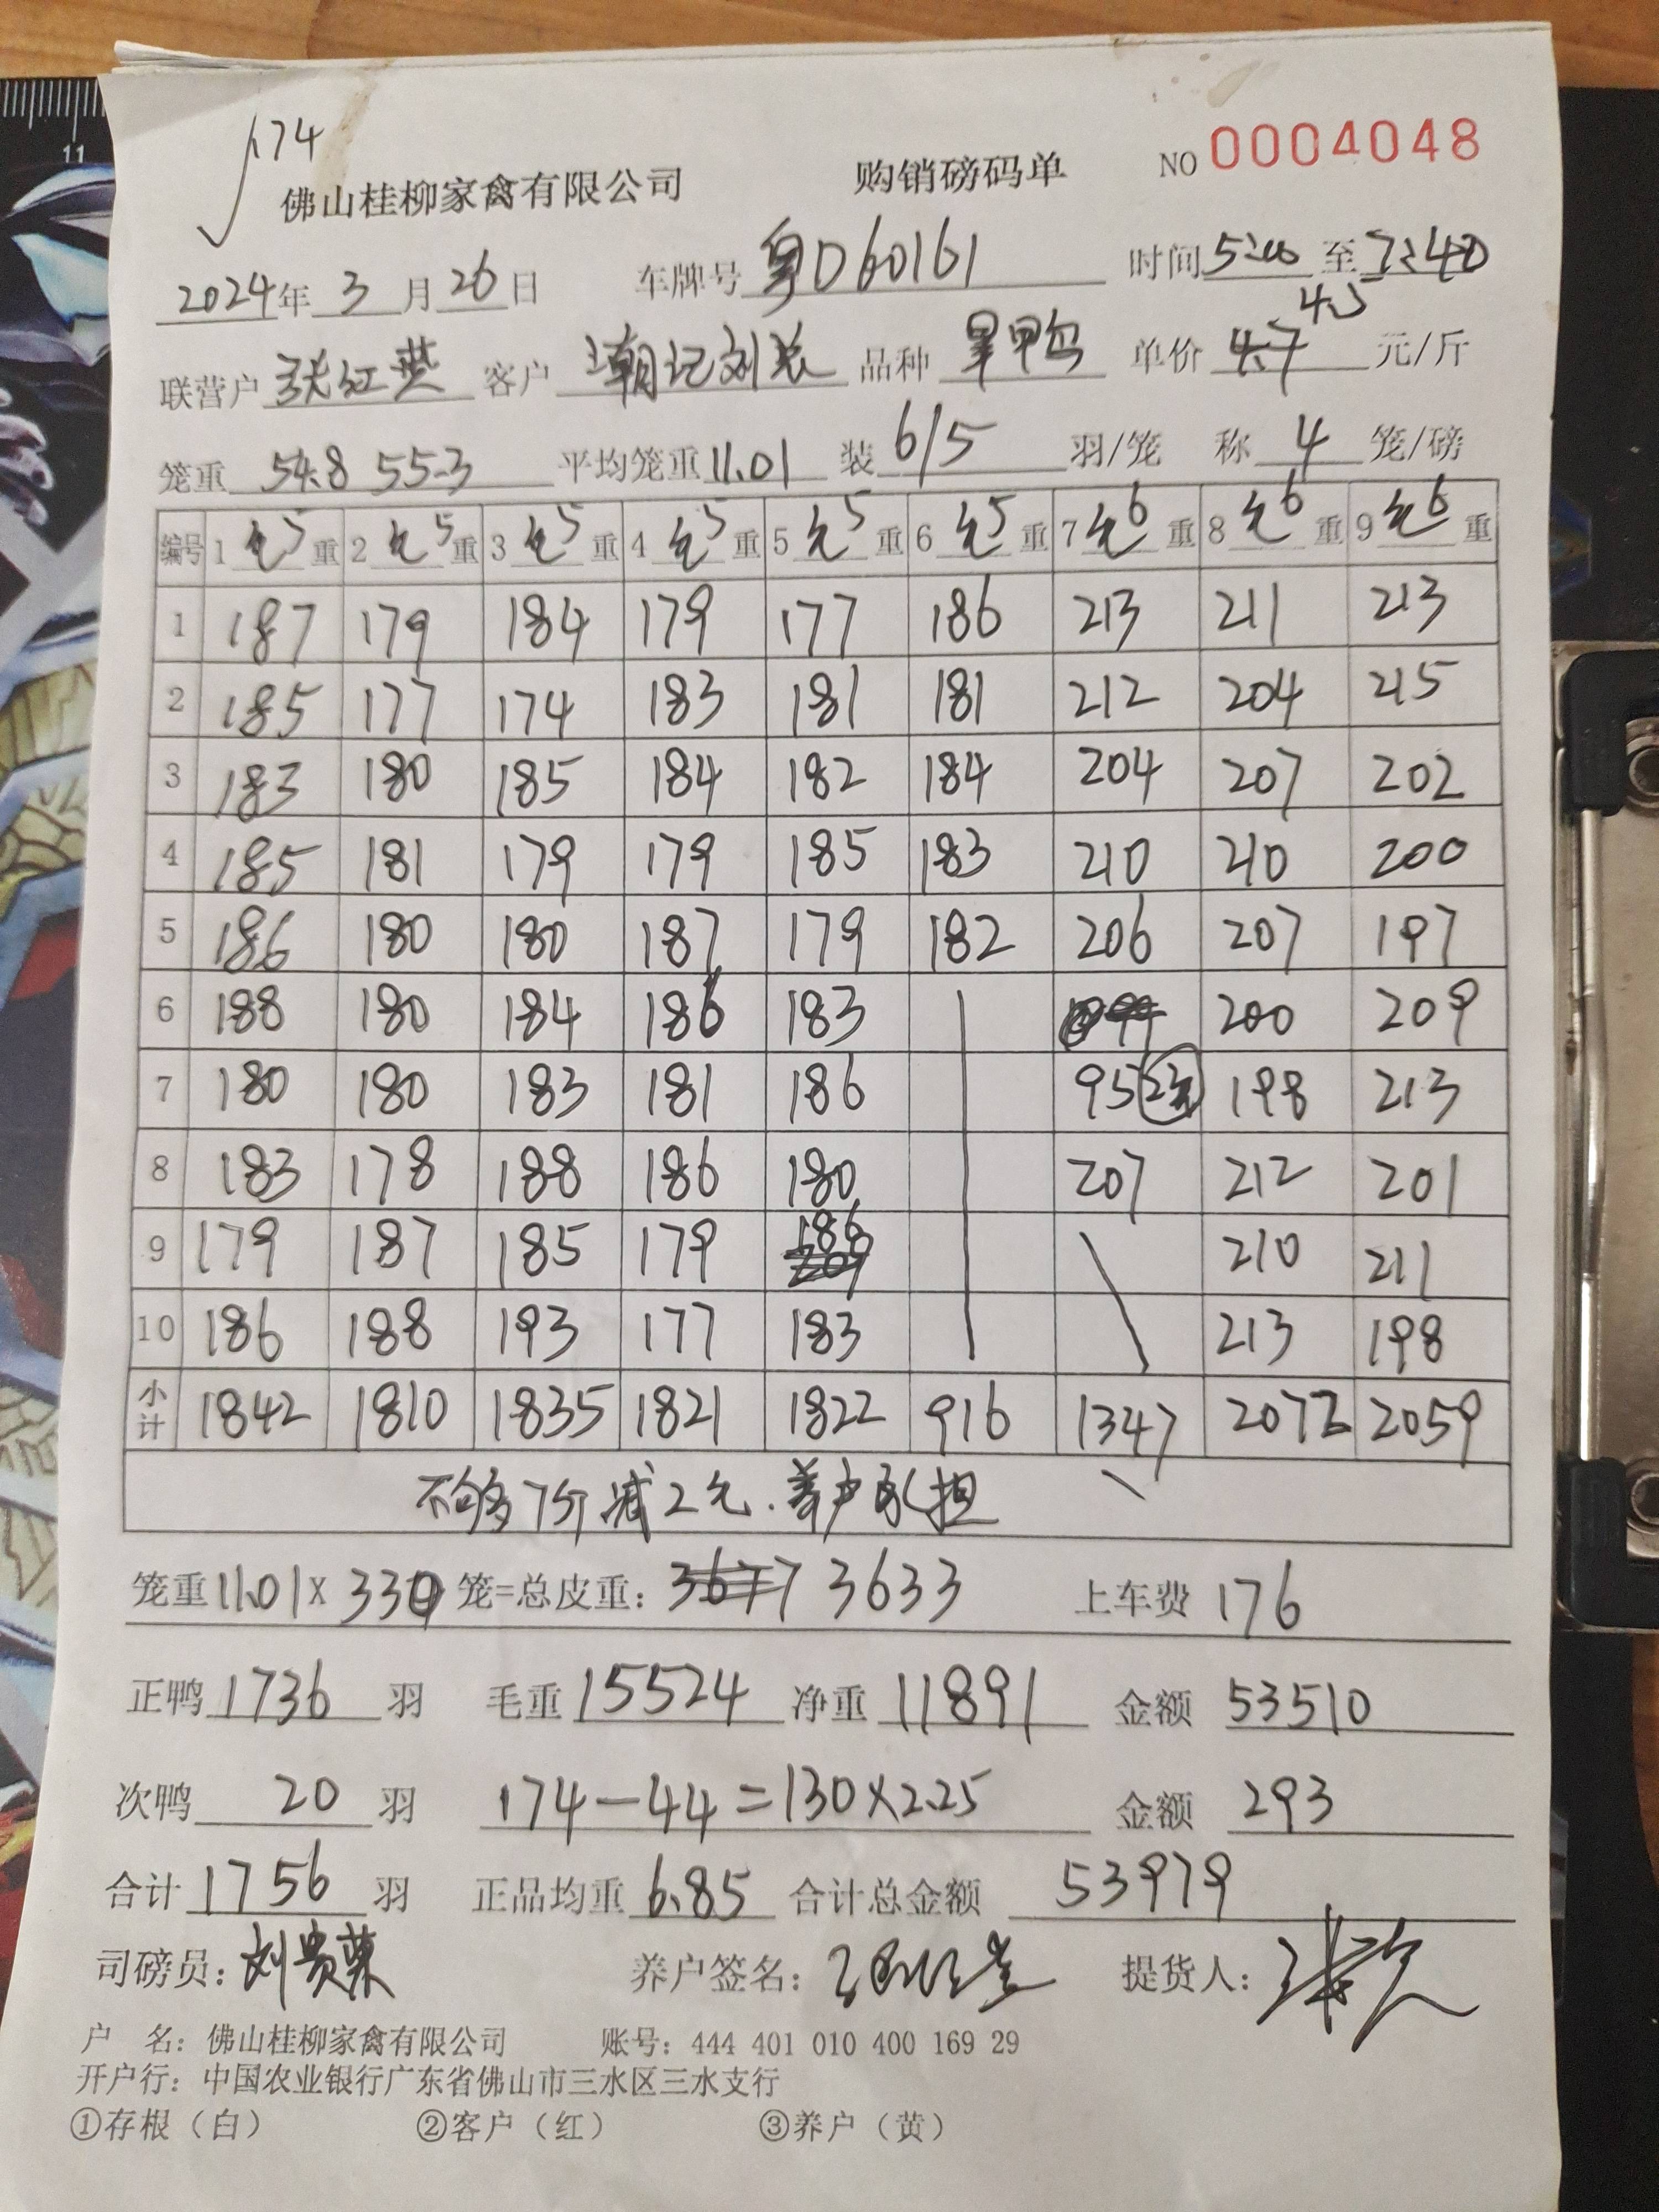 174
佛山桂柳家禽有限公司 购销磅码单 NO 0004048
2024年 3 月 26 日 车牌号 粤D60161 时间 5:00 至 7:40
4.5
联营户 张红燕 客户 潮记刘长 品种 旱鸭 单价 4.7 元/斤
笼重 54.8 55.3 平均笼重 11.01 装 6/5 羽/笼 称 4 笼/磅
编号 1 毛5 重 2 毛5 重 3 毛5 重 4 毛5 重 5 毛5 重 6 毛5 重 7 毛6 重 8 毛6 重 9 毛6 重
1 187 179 184 179 177 186 213 211 213
2 185 177 174 183 181 181 212 204 215
3 183 180 185 184 182 184 204 207 202
4 185 181 179 179 185 183 210 210 200
5 186 180 180 187 179 182 206 207 197
6 188 180 184 186 183 200 209
7 180 180 183 181 186 95 198 213
8 183 178 188 186 180 207 212 201
9 179 187 185 179 186 210 211
10 186 188 193 177 183 213 198
小计 1842 1810 1835 1821 1822 916 1347 2072 2059
不够7斤减2元.养户承担
笼重 11.01 x 330 笼=总皮重: 3677 3633 上车费 176
正鸭 1736 羽 毛重 15524 净重 11891 金额 53510
次鸭 20 羽 174-44=130×2.25 金额 293
合计 1756 羽 正品均重 6.85 合计总金额 53979
司磅员: 刘贵荣 养户签名: 提货人:
户 名: 佛山桂柳家禽有限公司 账号: 444 401 010 400 169 29
开户行: 中国农业银行广东省佛山市三水区三水支行
①存根(白) ②客户(红) ③养户(黄)
11